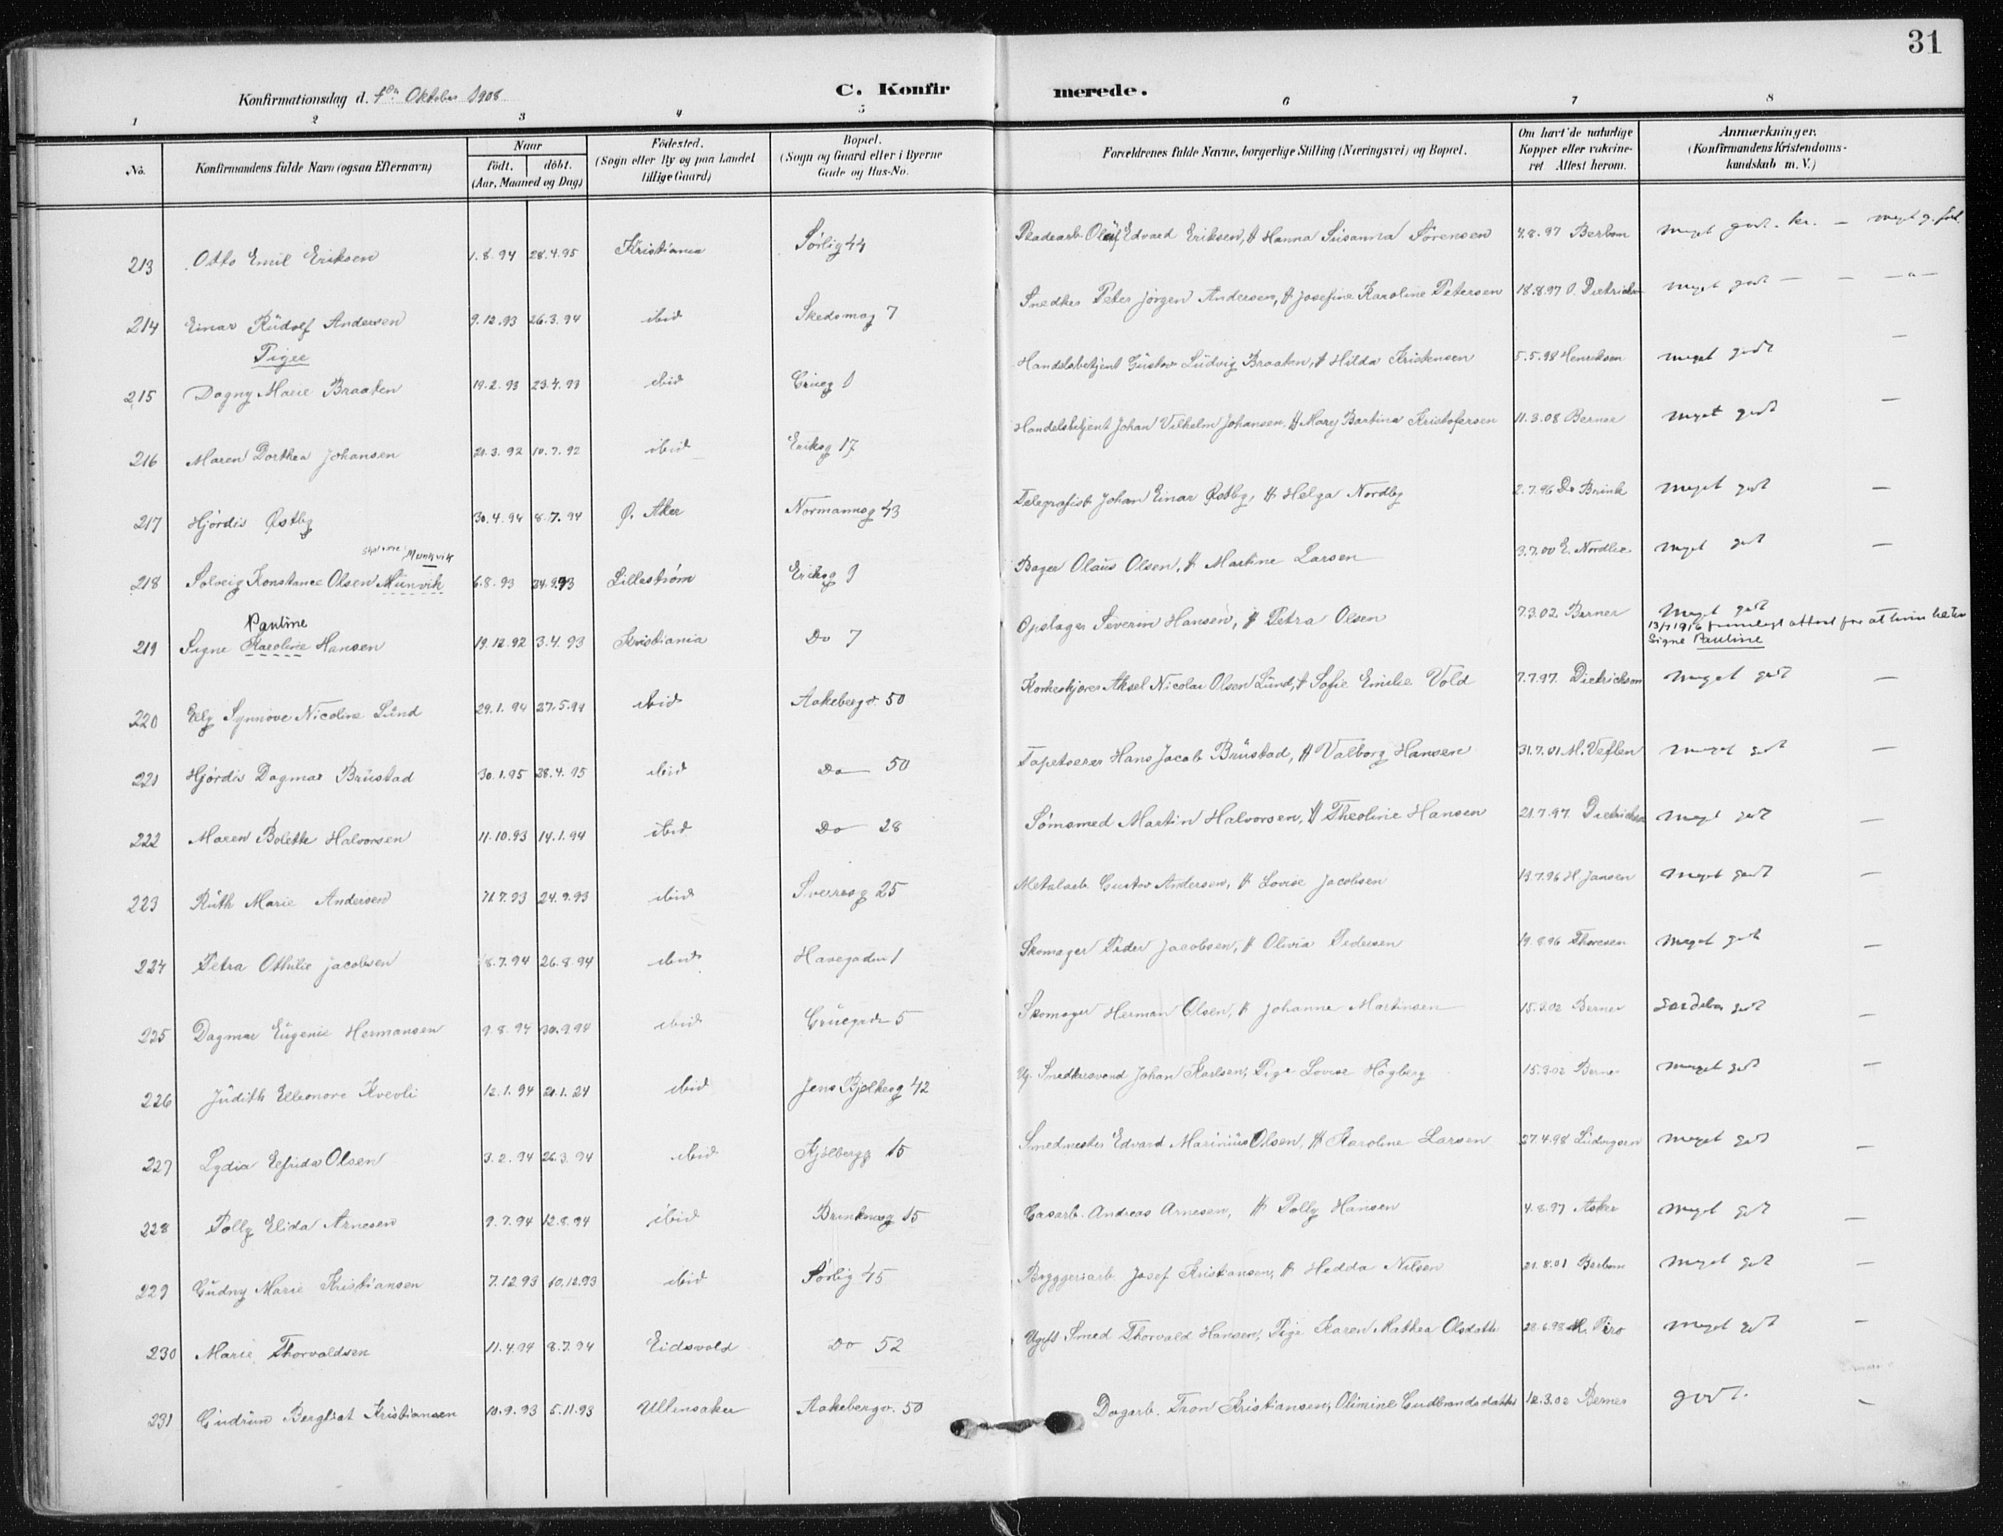 31
Konfirmationsdag d. 4de Oktober 1908
C. Konfirmerede.
1 2 3 4 5 6 7 8
No. Konfirmandens fulde Navn (ogsaa Efternavn) Naar født. døbt. (Aar, Maaned og Dag) Fødested. (Sogn eller By og paa Landet tillige Gaard) Bopæl. (Sogn og Gaard eller i Byerne Gade og Hus-No. Forældrenes fulde Navne, borgerlige Stilling (Næringsvei) og Bopæl. Om havt de naturlige Kopper eller vaccineret Attest herom. Anmærkninger. (Konfirmandens Kristendomskundskab m. V.)
213 Otto Emil Eriksen 1.8.94 28.4.95 Kristiania Sørlig 44 Pladearb. Oluf Edvard Eriksen, H Hanna Susanna Sørensen 4.8.97 Berbom Meget godt. kr. — meget g. forh
214 Einar Rudolf Andersen 9.12.93 26.3.94 ibid Skedsmog 7 Snedker Peter Jørgen Andersen, H Josefine Karoline Petersen 18.8.97 O. Dietrichson Meget godt — — —"—
Piger
215 Dagny Marie Braaten 19.2.93 23.4.93 ibid Grueg 1 Handelsbetjent Gustav Ludvig Braaten, H Hilda Kristensen 5.5.98 Henriksen meget godt —
216 Maren Dorthea Johansen 21.3.92 10.7.92 ibid Eriksg 17 Handelsbetjent Johan Vilhelm Johansen, H Mary Bartina Kristofersen 11.3.08 Berner Meget godt —
217 Hjørdis Østby 30.4.94 8.7.94 Ø. Aker Normannsg 43 Telegrafist Johan Einar Østby, H Helga Nordby 2.7.96 Dr Brink Meget godt —
Munkvik
218 Solveig Konstance Olsen Munvik 6.8.93 24.9.93 Lillestrøm Eriksg 9 Bager Olaus Olsen, H Martine Larsen 3.7.00 E. Nordlie Meget godt —
Pauline
219 Signe Karoline Hansen 19.12.92 3.4.93 Kristiania Do 7 Opslager Severin Hansen, H Petra Olsen 7.3.02 Berner Meget godt
13/7 1916 fremlagt attest for at hun heter
Signe Pauline
220 Elly Synnøve Nicoline Lund 29.1.94 27.5.94 ibid Aakebergv. 50 Aksel Nicolai Olsen Lund, H Sofie Emilie Vold 7.7.97 Dietrichson meget godt —
221 Hjørdis Dagmar Brustad 30.1.95 28.4.95 ibid Do 50 Tapetserer Hans Jacob Brustad, H Valborg Hansen 31.7.01 M. Veflen meget godt —
222 Maren Bolette Halvorsen 11.10.93 14.1.94 ibid Do 28 Sømsmed Martin Halvorsen, H Theoline Hansen 21.7.97 Dietrichson meget godt —
223 Ruth Marie Andersen 7.93 24.9.93 ibid Sverresg 25 Metalarb. Gustav Andersen, H Lovise Jacobsen 13.7.96 H Jansen Meget godt —
224 Petra Othilie Jacobsen 8.7.94 26.8.94 ibid Havegaden 1 Skomager Peder Jacobsen, H Olivia Pedersen 19.8.96 Thoresen Meget godt —
225 Dagmar Eugenie Hermansen 9.8.94 30.9.94 ibid Gruegade 5 Skomager Herman Olsen, H Johanne Martinsen 15.3.02 Berner Særdeles godt —
226 Judith Elleonore Kvevli 12.1.94 21.1.24 ibid Jens Bjelkesg 42 Ug. Snedkersvend Johan Karlsen, Pige Lovise Høgberg 15.3.02 Berner meget godt —
227 Lydia Elfrida Olsen 3.2.94 26.3.94 ibid Kjølbergg 15 Smedmester Edvard Marinius Olsen, H Karoline Larsen 27.4.98 Ludvigsen Meget godt —
228 Polly Elida Arnesen 9.7.94 12.8.94 ibid Brinkensg 15 Gasarb. Andreas Arnesen, H Polly Hansen 4.8.97 Asker Meget godt —
229 Gudny Marie Kristiansen 7.12.93 10.12.93 ibid Sørlig 45 Bryggeriarb. Josef Kristiansen, H Hedda Nilsen 21.8.01 Berbom Meget godt —
230 Marie Thorvaldsen 11.4.94 8.7.94 Eidsvold Do 52 Ugift Smed Thorvald Hansen, Pige Karen Mathea Olsdatter 28.6.98 meget godt —
231 Gudrun Bergliot Kristiansen 10.9.93 5.11.93 Ullensaker Aakebergv. 50 Dagarb. Tron Kristiansen, Olimine Gudbrandsdatter 12.3.02 Berner godt. —